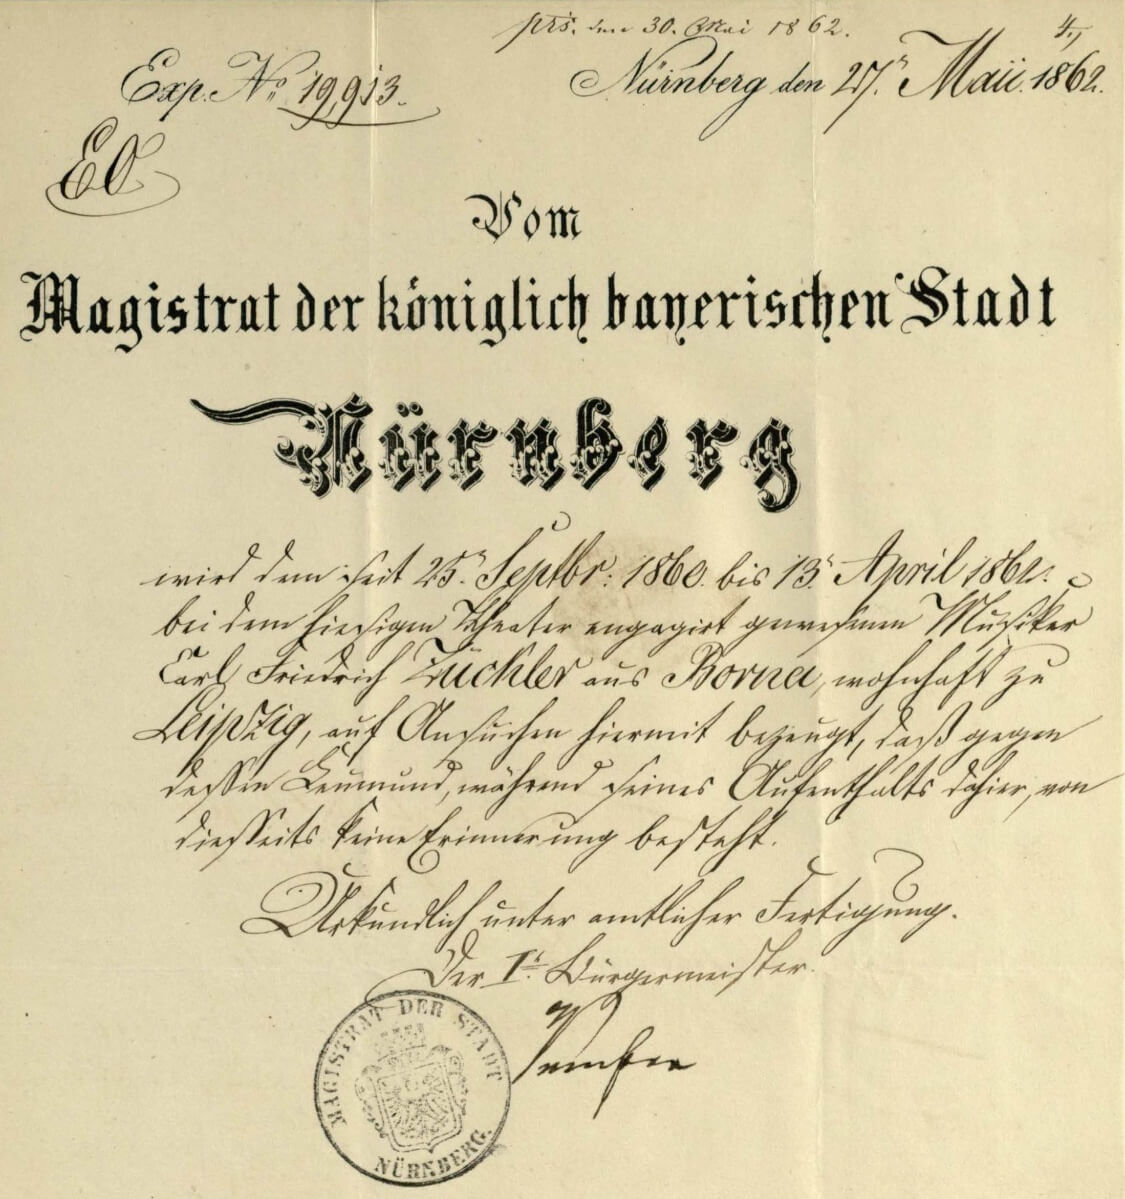 prs. den 30. Mai 1862.
4.,
Exp. No. 19,913.
Nürnberg den 27.ᵗ Maii. 1862.
Vom
Magistrat der königlich bayerischen Stadt
Nürnberg
wird dem seit 25.ᵗ Septbr: 1860. bis 13.ᵗ April 1862.
bei dem hiesigen Theater engagirt gewesenen Musiker
Carl Friedrich Zückler aus Borna, wohnhaft zu
Leipzig, auf Ansuchen hiermit bezeugt, daß gegen
dessen Leumund, während seines Aufenthalts dahier, von
diesseits keine Erinnerung besteht.
Urkundlich unter amtlicher Fertigung.
Der I.ᵗ Bürgermeister.
MAGISTRAT DER STADT
NÜRNBERG.